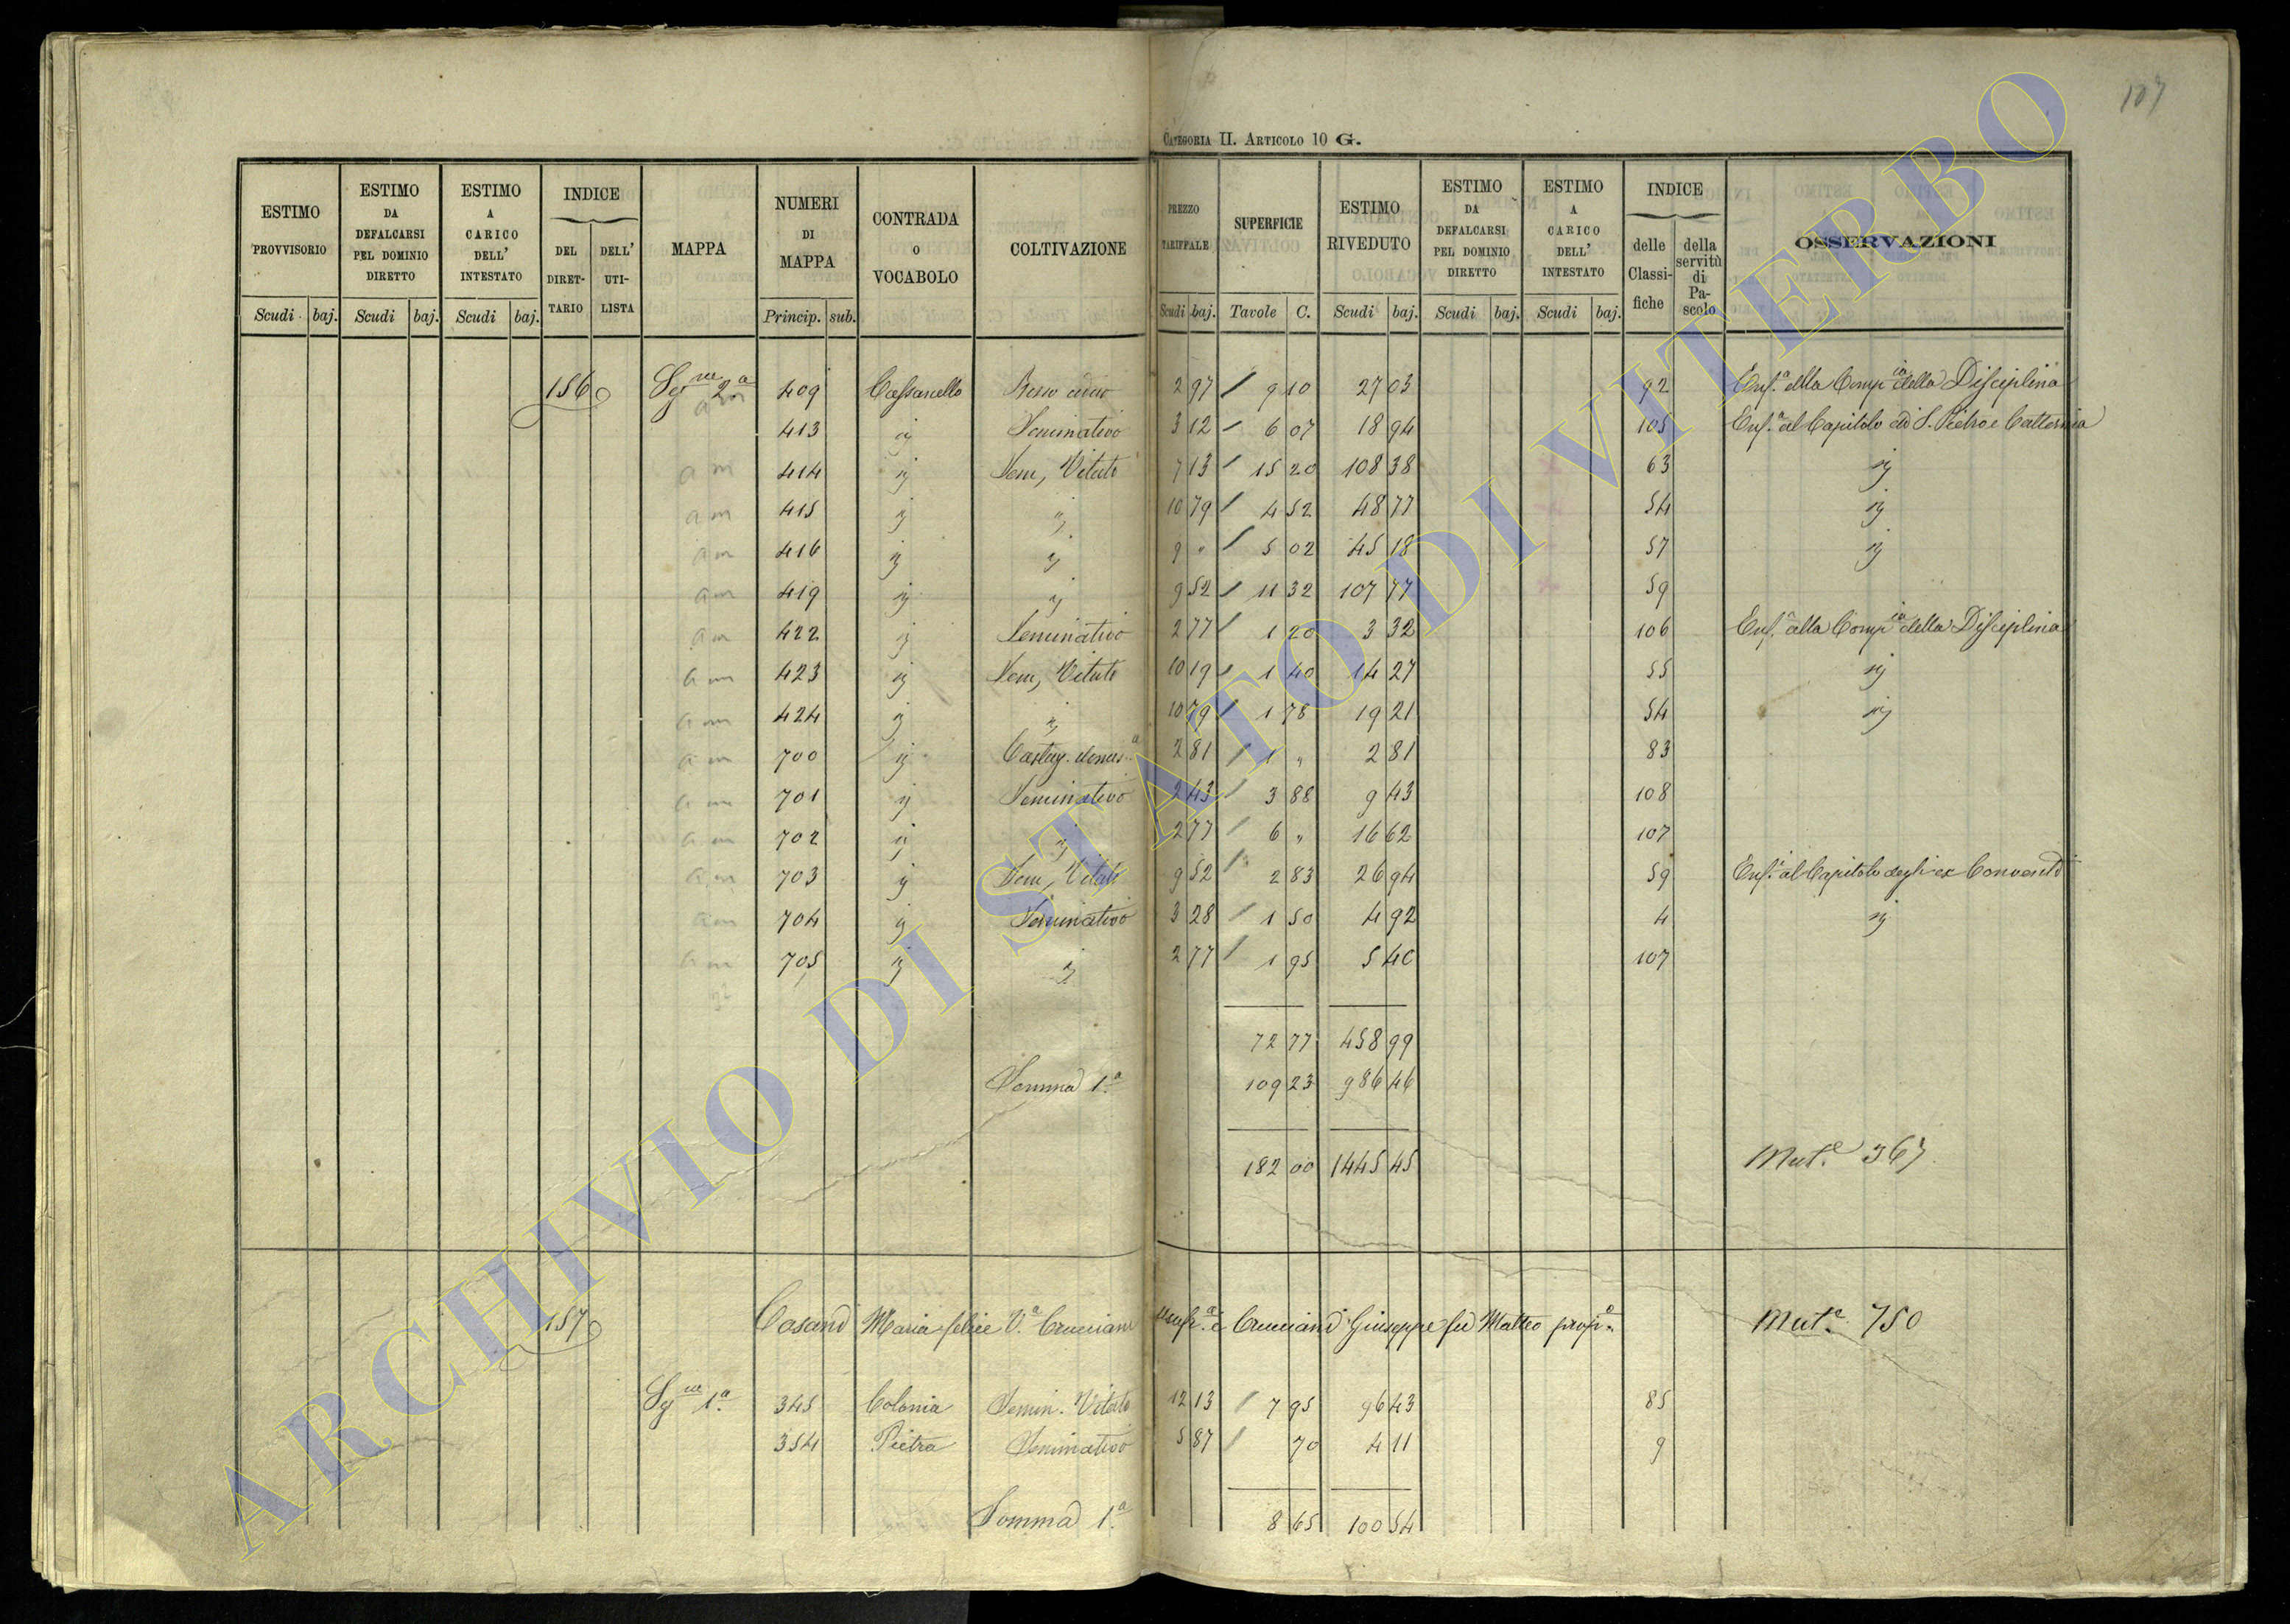 107
CATEGORIA II. ARTICOLO 10 G.
ESTIMO PROVVISORIO
ESTIMO DA DEFALCARSI PEL DOMINIO DIRETTO
ESTIMO A CARICO DELL' INTESTATO
INDICE
DEL DIRETTARIO
DELL' UTILISTA
MAPPA
NUMERI DI MAPPA
CONTRADA O VOCABOLO
COLTIVAZIONE
PREZZO TARIFFALE
SUPERFICIE
ESTIMO RIVEDUTO
ESTIMO DA DEFALCARSI PEL DOMINIO DIRETTO
ESTIMO A CARICO DELL' INTESTATO
INDICE
delle Classifiche
della servitù di Pascolo
OSSERVAZIONI
Scudi baj. Scudi baj. Scudi baj. Princip. sub. Scudi baj. Tavole C. Scudi baj. Scudi baj. Scudi baj.
156 Sez.ne 2a 409 Cassanello Bosco ceduo 2 97 9 10 27 03 92 Enf.a alla Comp.ia della Disciplina
413 ij Seminativo 3 12 6 07 18 94 105 Enf.a al Capitolo di S. Pietro e Catterina
am 414 ij Sem, Vitato 7 13 15 20 108 38 63 ij
am 415 ij ij 10 79 4 52 48 77 54 ij
am 416 ij ij 9 " 5 02 45 18 57 ij
am 419 ij ij 9 52 11 32 107 77 59
am 422 ij Seminativo 2 77 1 20 3 32 106 Enf.a alla Comp.ia della Disciplina
am 423 ij Sem, Vitato 10 19 1 40 14 27 55 ij
am 424 ij ij 10 79 1 78 19 21 54 ij
am 700 ij Castag. domes.a 2 81 1 " 2 81 83
am 701 ij Seminativo 2 43 3 88 9 43 108
am 702 ij ij 2 77 6 " 16 62 107
am 703 ij Sem, Vitato 9 52 2 83 26 94 59 Enf.a al Capitolo degli ex Conventi
am 704 ij Seminativo 3 28 1 50 4 92 4 ij
am 705 ij ij 2 77 1 95 5 40 107
72 77 458 99
Somma 1a 109 23 986 46
182 00 1445 45 Mut.e 367
157 Maria felice V.a Cruciani usufr.a e Cruciani Giuseppe fu Matteo prop.o Mut.e 750
Sez.ne 1a 345 Colonia Semin. Vitato 12 13 7 95 96 43 85
354 Pietra Seminativo 5 87 70 4 11 9
Somma 1a 8 65 100 54
ARCHIVIO DI STATO DI VITERBO